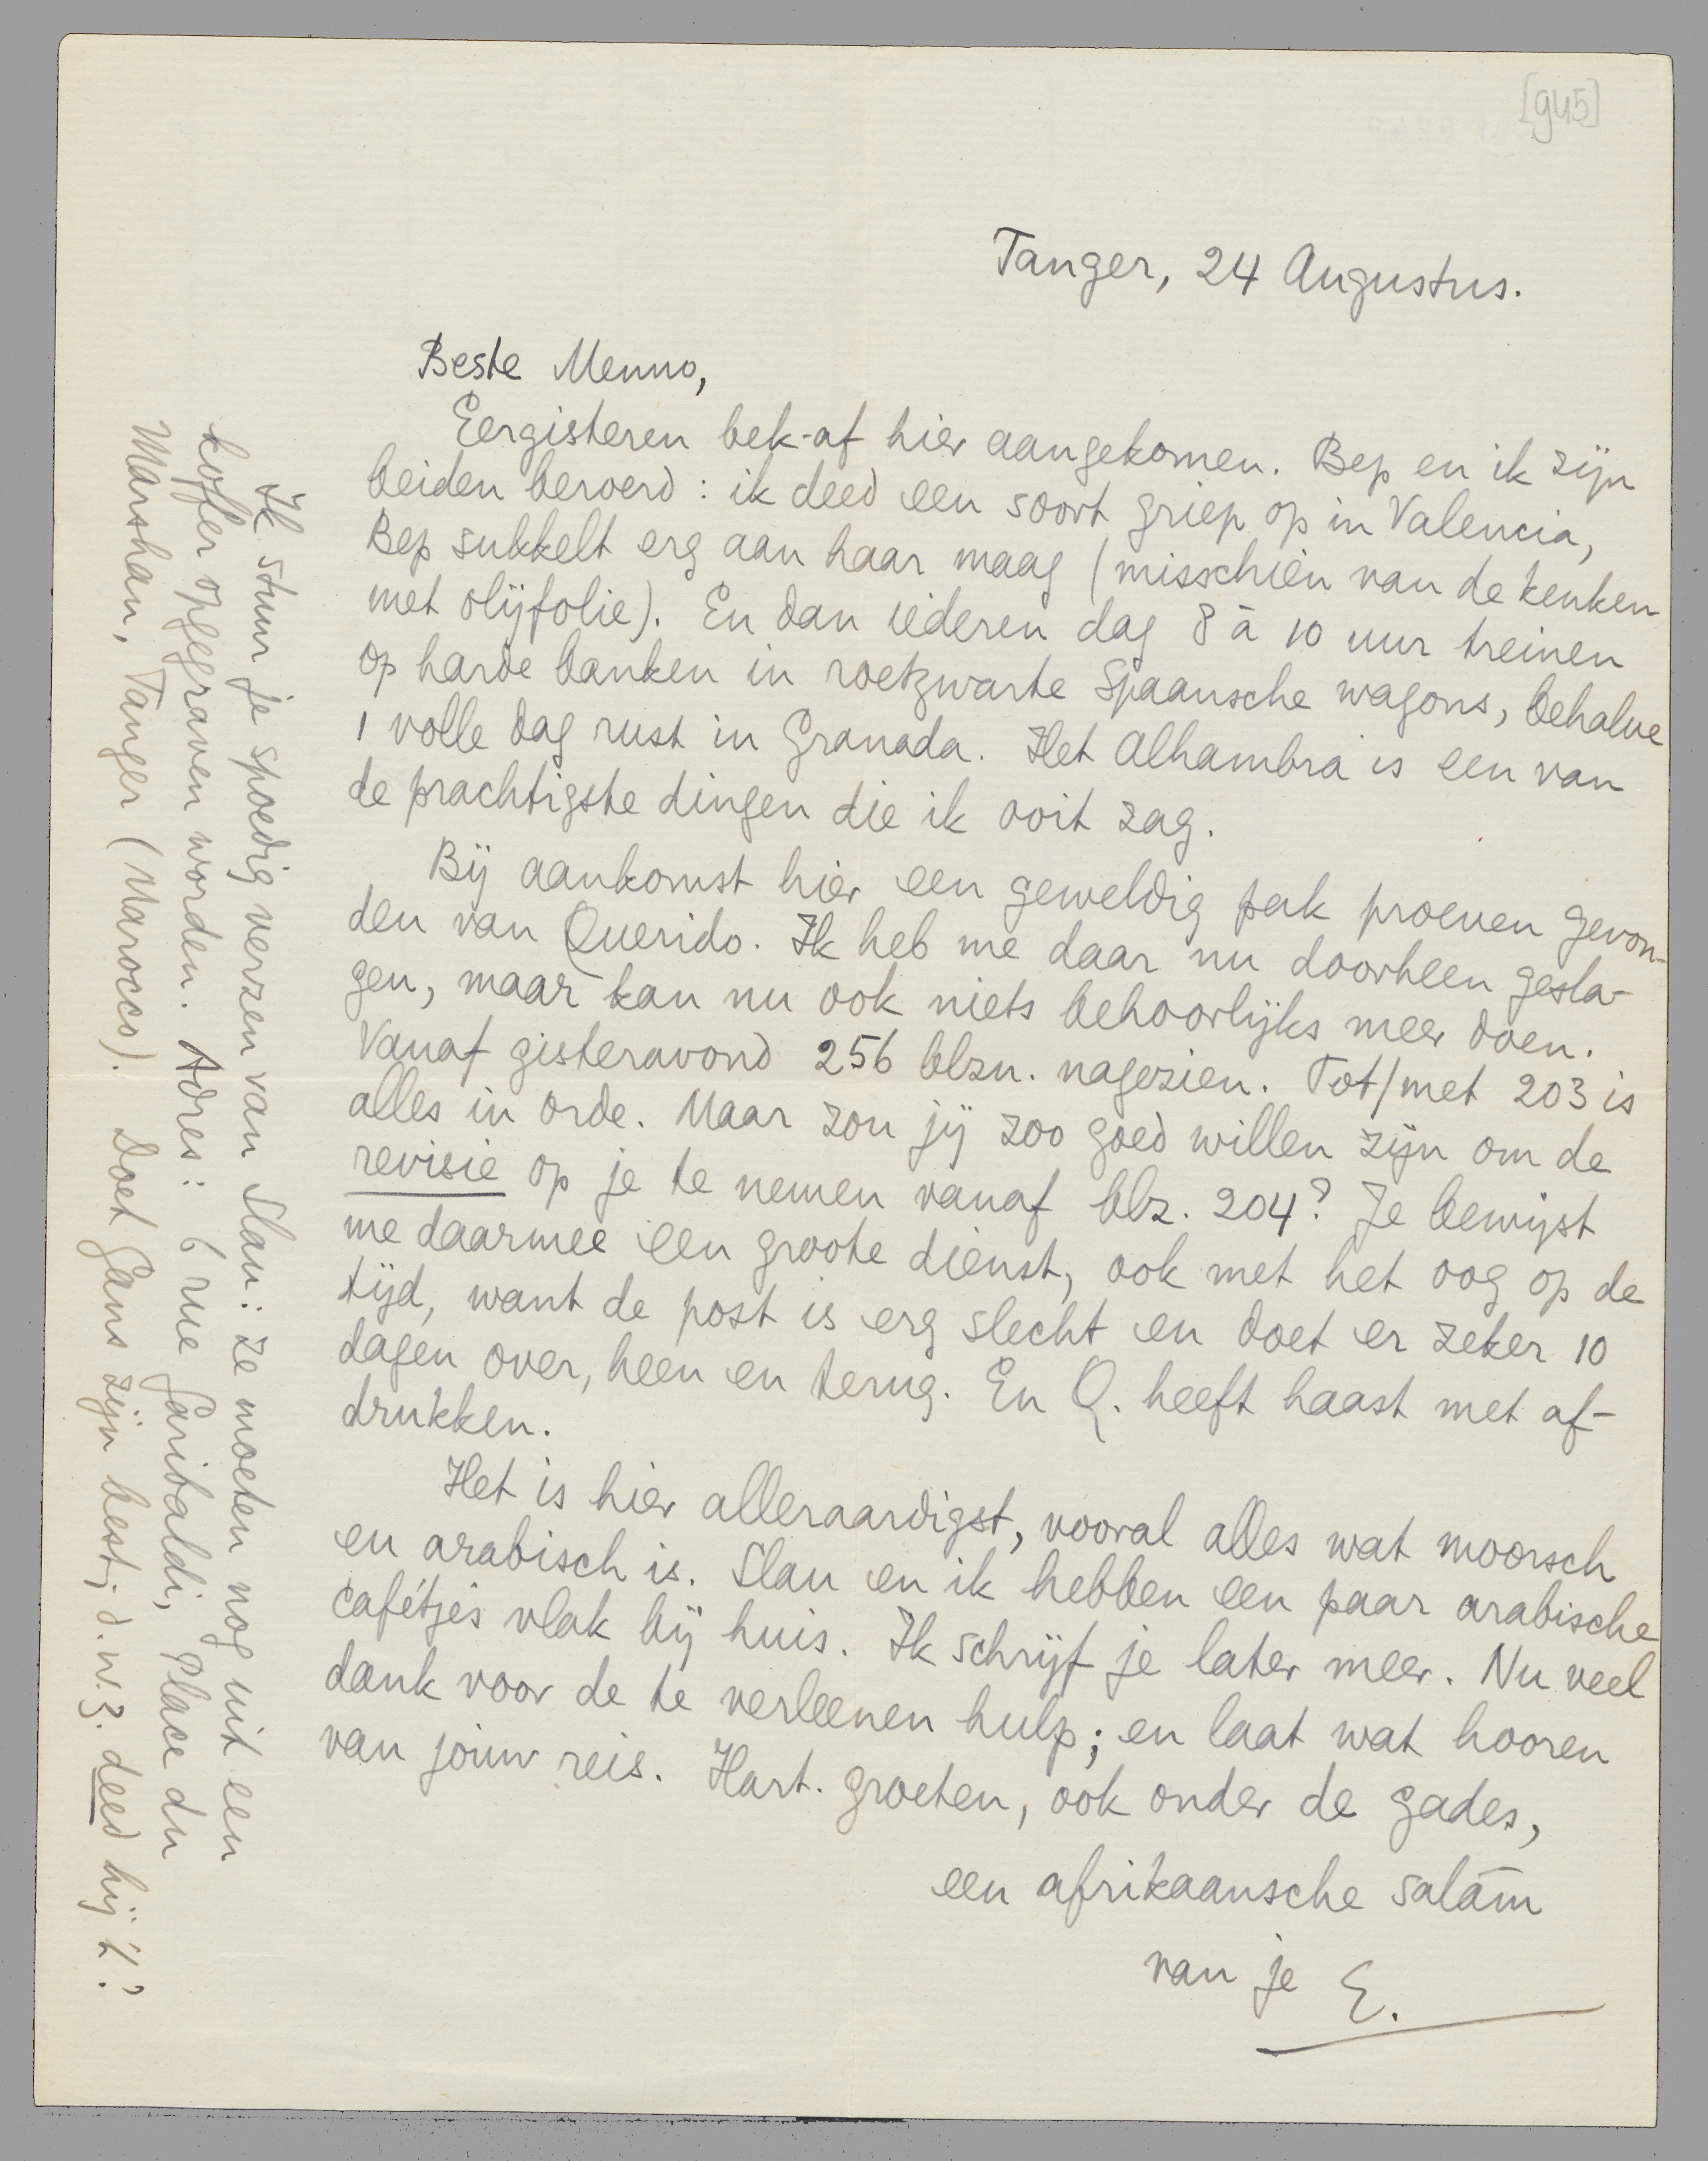 [945]
Tanger, 24 Augustus.
Beste Menno,
Eergisteren bek-af hier aangekomen. Bep en ik zijn
beiden beroerd: ik deed een soort griep op in Valencia,
Bep sukkelt erg aan haar maag (misschien van de keuken
met olijfolie). En dan iederen dag 8 à 10 uur treinen
op harde banken in roetzwarte Spaansche wagons, behalve
1 volle dag rust in Granada. Het Alhambra is een van
de prachtigste dingen die ik ooit zag.
Bij aankomst hier een geweldig pak proeven gevon-
den van Querido. Ik heb me daar nu doorheen gesla-
gen, maar kan nu ook niets behoorlijks meer doen.
Vanaf gisteravond 256 blzn. nagezien. Tot/met 203 is
alles in orde. Maar zou jij zoo goed willen zijn om de
revisie op je te nemen vanaf blz. 204? Je bewijst
me daarmee een groote dienst, ook met het oog op de
tijd, want de post is erg slecht en doet er zeker 10
dagen over, heen en terug. En Q. heeft haast met af-
drukken.
Het is hier alleraardigst, vooral alles wat moorsch
en arabisch is. Slau en ik hebben een paar arabische
cafétjes vlak bij huis. Ik schrijf je later meer. Nu veel
dank voor de te verleenen hulp; en laat wat hooren
van jouw reis. Hart. groeten, ook onder de gades,
een afrikaansche salām
van je E.
Ik stuur je spoedig verzen van Slau: ze moeten nog uit een
koffer opgegraven worden. Adres: 6 rue Garibaldi, Place du
Marshan, Tanger (Marocco). Doet Gans zijn best; d.w.z. deed hij 't?